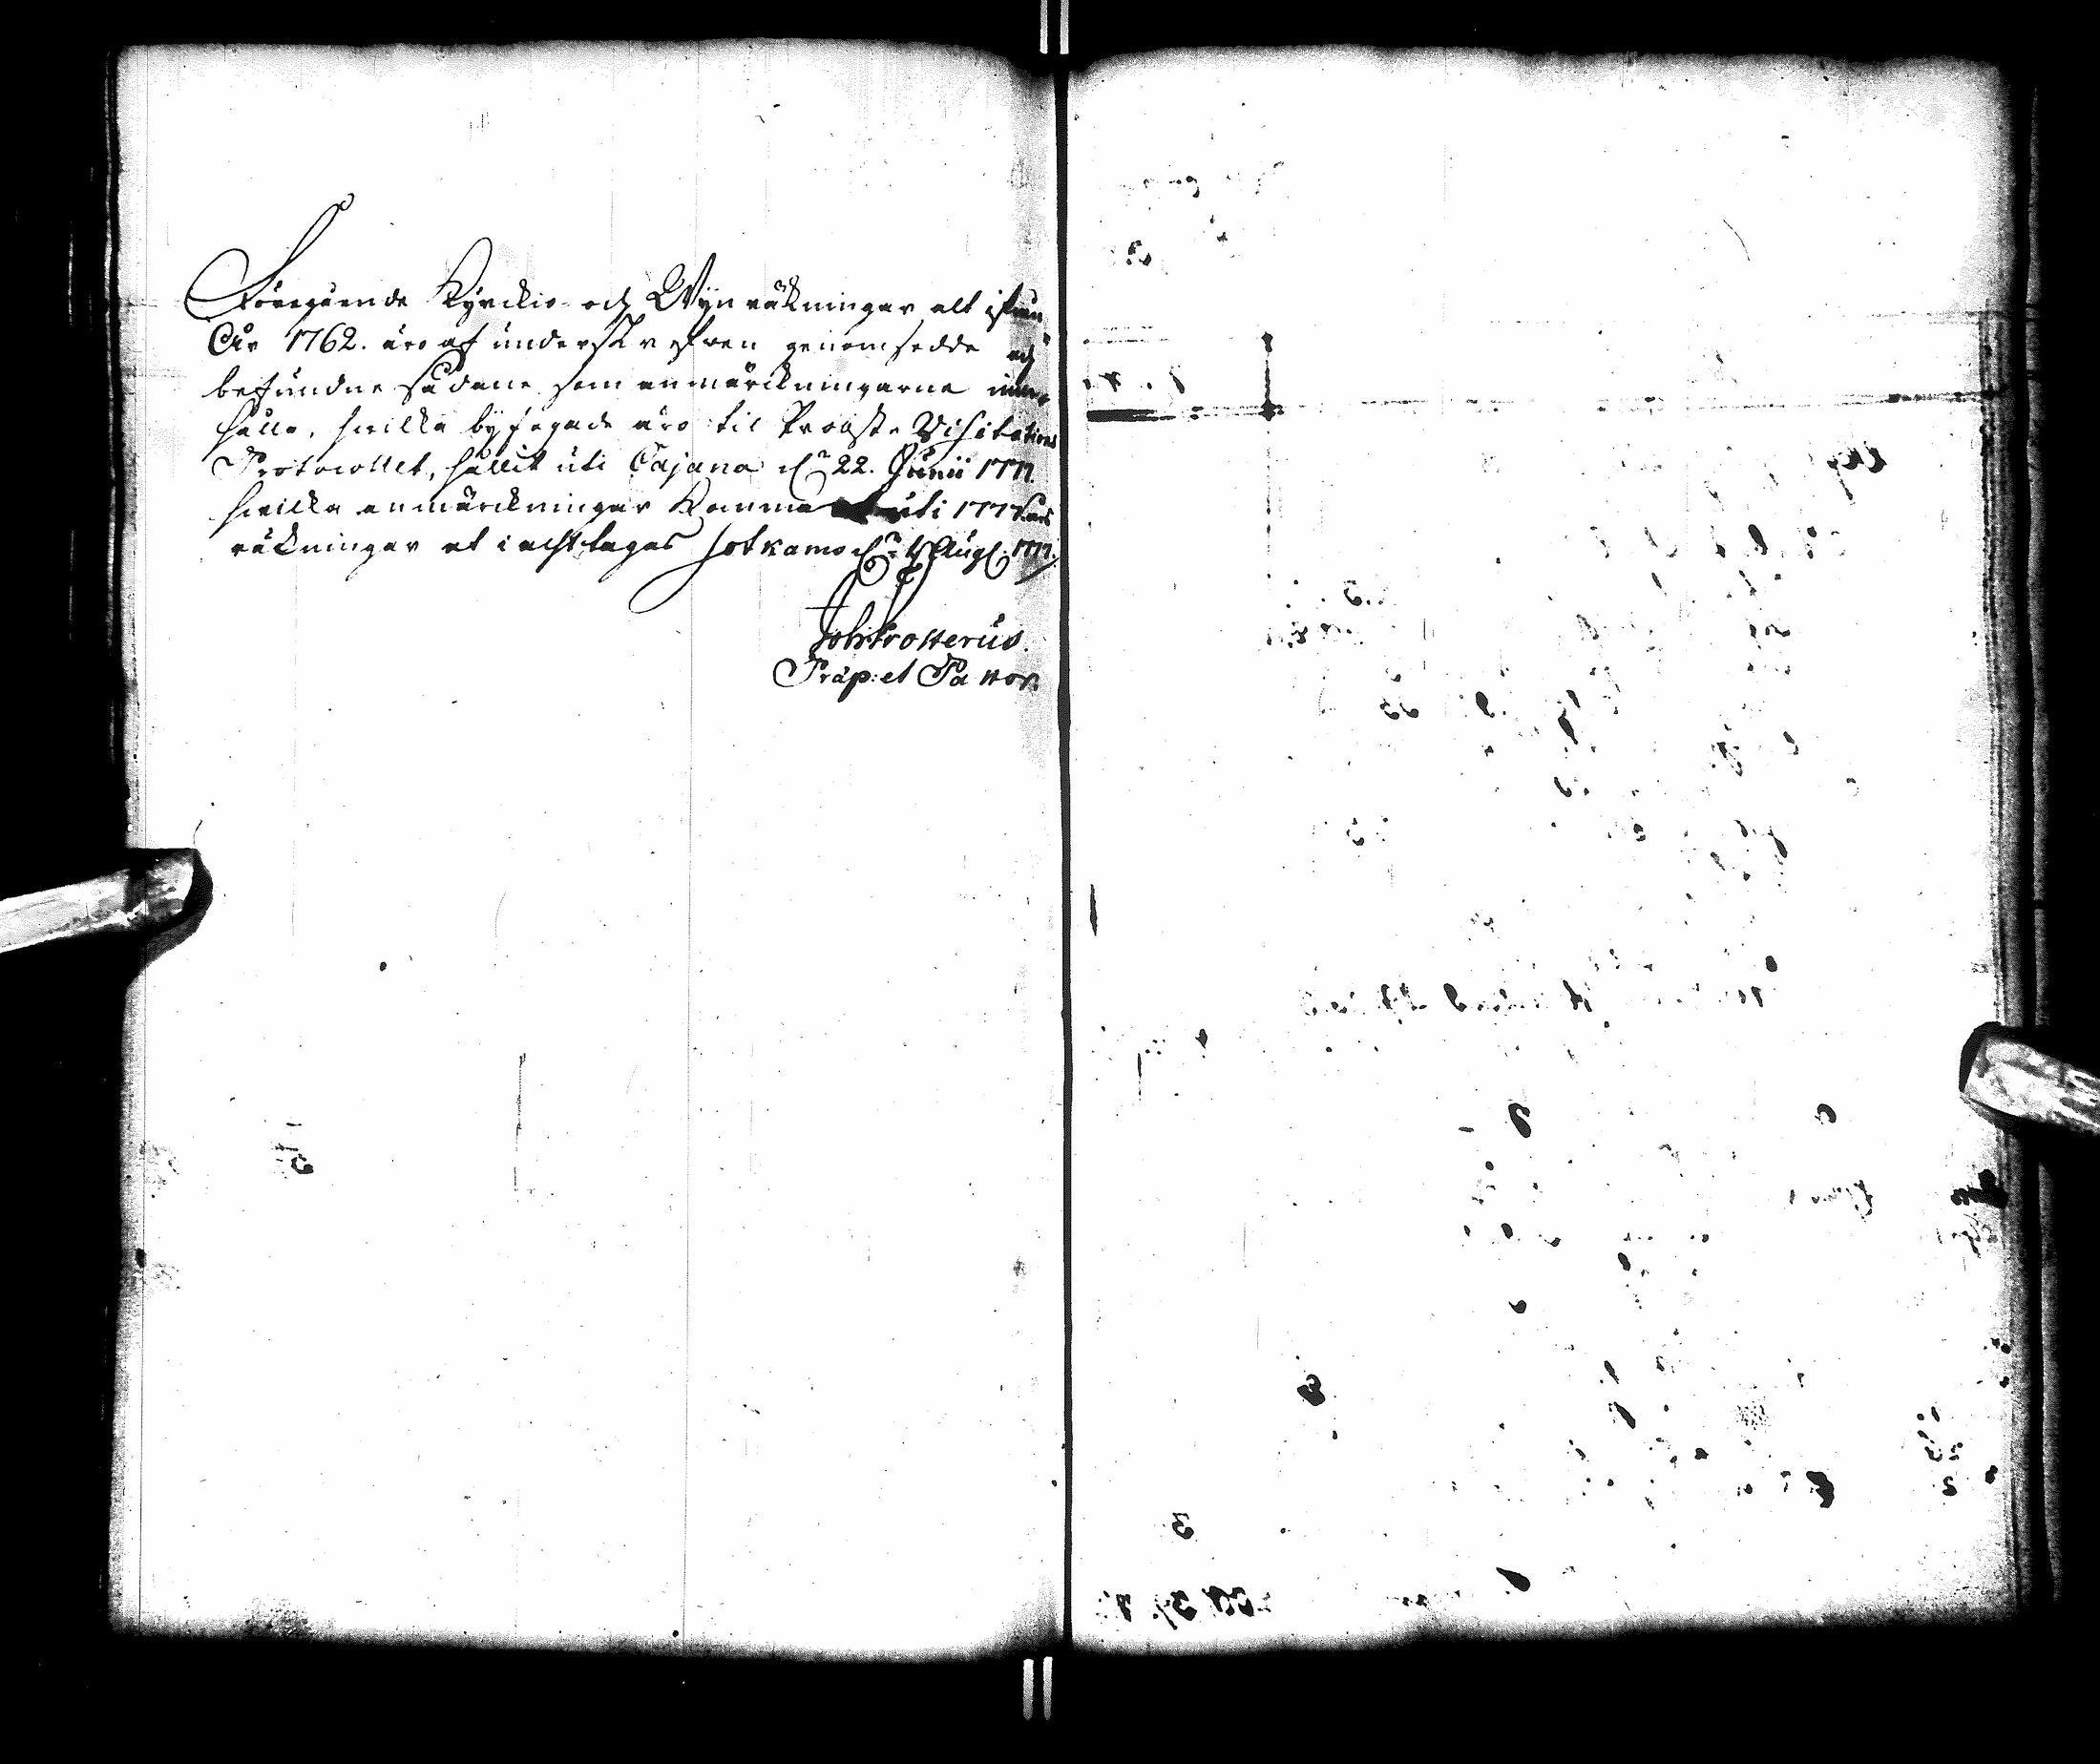 Föregående Kyrckio och Wijn räkningar alt ifrån
År 1762. äro af underskrefven genomsedde och
befundne sådane som anmärckningarne inne-
hålla, hvilka byfogade äro til Probste Visitations
Protocollet, hållit uti Cajana d. 22. Junii 1777.
hvilka anmärckningar komma uti 1777 års
räkningar at i acht tagas Sotkamo d. Aug. 1777.
Joh: Frosterus.
Præp: et Pastor.